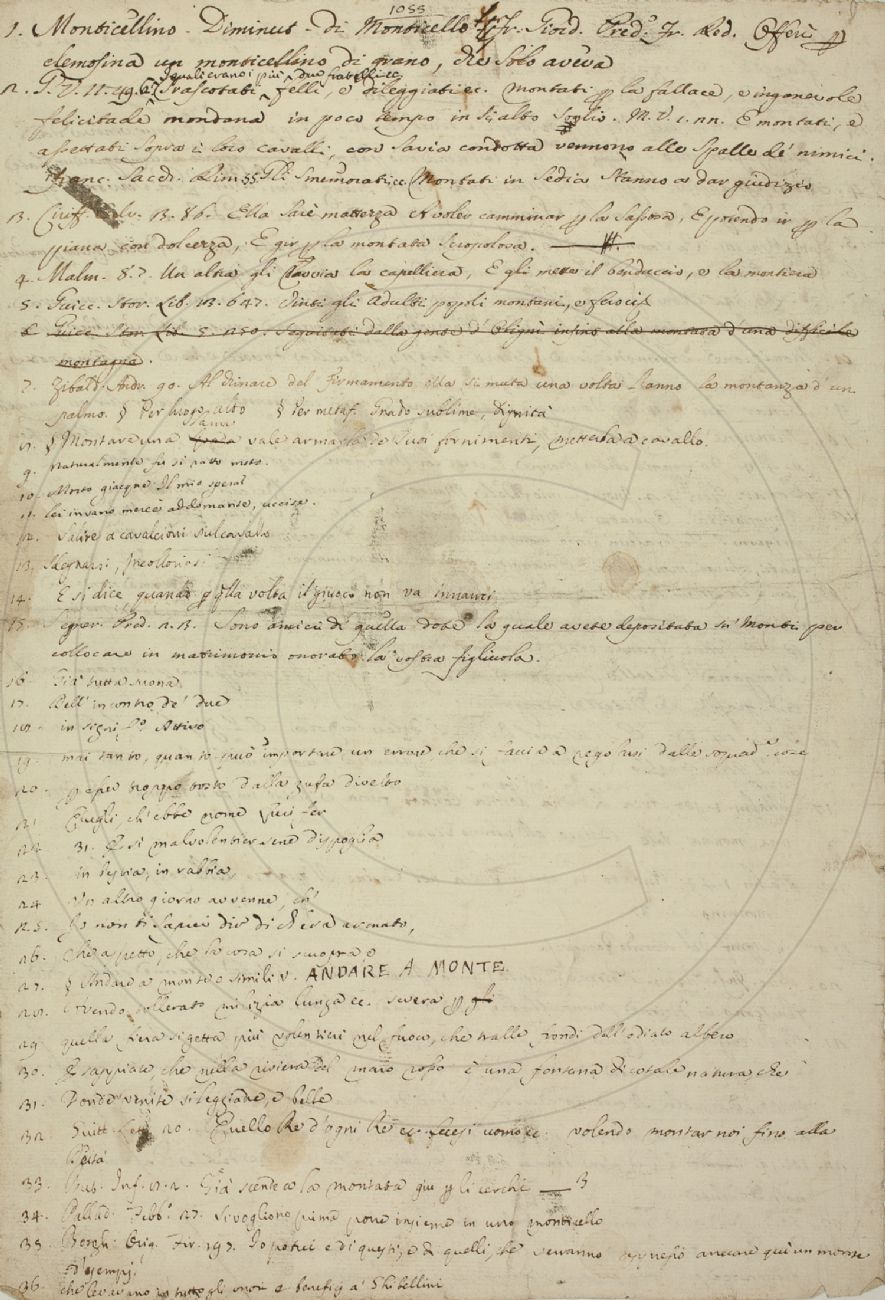 1055
1. Monticellino. Diminut. di Monticello Fr. Giord. Pred. Fr. Red. Offerì p
elemosina un monticellino di grano, che solo aveva
quali erano i più due fratelli ec
2. Trascotati felli, e dileggiati ec. montati p la fallace, e ingannevole
felicitade mondana in poco tempo in sì alto soglio. M. V. 1. E montati, e
assettati sopra i loro cavalli, con savia condotta vennono alle spalle de' nimici.
Franc. Sacch. Rim. 55. Gli smemorati ec. Montati in sedia stanno a dar giudizio
3. Ciriff. Calv. 13. 86. Ella saiè mattezza A voler camminar p la sassosa, E potendo ir p la
piana con dolcezza, E gir p la montata scropolosa.
4. Malm. 8. 7. Un altra gli ravvia la capelliera, E gli mette il benduccio, e la montiera
5. Guicc. Stor. Lib. 13. 647. Vinti gli adulti popoli montani, e feroci
6. Guicc. Stor. Lib. 5. 250. Seguitati dalla gente d' Obignì infino alla montata d'una difficile
montagna.
7. Zibald. Andr. 90. Al girare del firmamento ella si muta una volta l'anno la montanza d' un
palmo. § Per luogo alto § Per metaf. Grado sublime, Dignità
8. § Montare una vale armarla de' suoi fornimenti, metterla a cavallo.
9. Naturalmente fu sì fatto moto.
10. Morto giacque Il mio sperar
11. Lei invano mercè addomanse, uccise.
12. Salire a cavalcioni sul cavallo
13. Sdegnarsi, Incollorirsi
14. E si dice, quando p qlla volta il giuoco non va innanzi
15. Segner. Pred. 2. 13. Sono amici di quella dote la quale avete depositata su' Monti per
collocare in matrimonio onorato la vostra figliuola.
16. Già tutta mona
17. Dell' incontro de' due
18. in signif.o Attivo
19. mai tanto, quanto può importare un errore che si faccia a regolarsi dalle cose
20. p esser troppo tosto dalla zuffa divelto
21. Quegli ch' ebbe nome
22. 31. E sì malvolentier sene dispoglia
23. in bestia, in rabbia,
24. Un altro giorno avvenne, ch'
25. Io non ti saprei dir di ch' era armato,
26. Che aspetto, che la cosa si scuopra o
27. § Andare a monte o simili v. ANDARE A MONTE
28. Avendo tollerato milizia lunga ec. severa p gli
29. quella fiera si getta più volentieri nel fuoco, che tralle frondi dell' odiato albero
30. E sappiate, che nella riviera del mare rosso è una fontana di cotale natura, che
31. Donde venite sì leggiadre, e belle
32. Guitt. Lett. 20. Quello Re d'ogni Re ec. fecesi uomo ec. volendo montar noi fino alla
Deità
33. But. Inf. 17. 2. Già scende a la montata giù p li cerchi
34. Pallad. Febb. 27. Si vogliono prima porre insieme in uno monticello
35. Borgh. Orig. Fir. 193. Io potrei e di questi, e di quelli, che verranno appresso arrecare quì un monte
d'esempj.
36. che levavano in tutto gli onori e beneficj a' Ghibellini